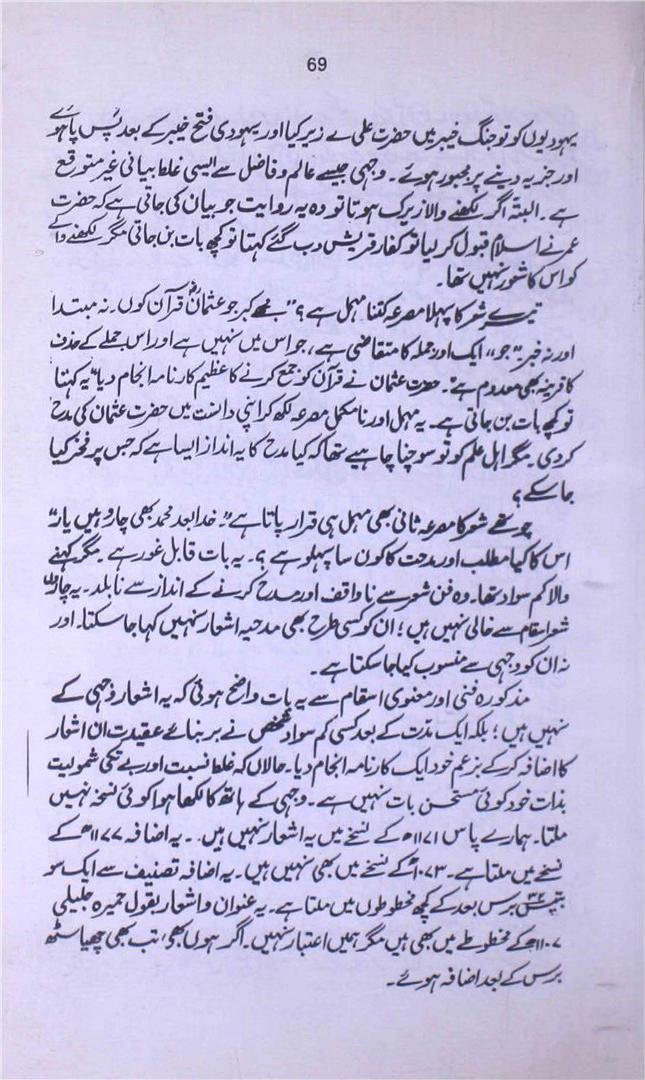 69
یہودیوں کو تو جنگ خیبر میں حضرت علی نے زیر کیا اور یہودی فتح خیبر کے بعد پس پا ہوئے
اور جزیہ دینے پر مجبور ہوئے۔ وجہی جیسے عالم و فاضل سے ایسی غلط بیانی غیر متوقع
ہے۔ البتہ اگر لکھنے والا زیرک ہوتا تو وہ یہ روایت جو بیان کی جاتی ہے کہ حضرت
عمر نے اسلام قبول کر لیا تو کفار قریش دب گئے کہتا تو کچھ بات بن جاتی مگر لکھنے والے
کو اس کا شعور نہیں تھا۔
تیسرے شعر کا پہلا مصرعہ کتنا مہمل ہے؟ "بجے کبر جو عثمانؓ قرآن کوں۔ نہ مبتدا
اور نہ خبر "جو" ایک اور جملہ کا متقاضی ہے، جو اس میں نہیں ہے اور اس جملے کے حذف
کا قرینہ بھی معدوم ہے"۔ حضرت عثمان نے قرآن کو جمع کرنے کا عظیم کارنامہ انجام دیا" یہ کہنا
تو کچھ بات بن جاتی ہے۔ یہ مہمل اور نامکمل مصرعہ لکھ کر اپنی دانست میں حضرت عثمان کی مدح
کر دی۔ مگر اہل علم کو تو سوچنا چاہیے تھا کہ کیا مدح کا یہ انداز ایسا ہے کہ جس پر فخر کیا
جا سکے؟
چوتھے شعر کا مصرعہ ثانی بھی مہمل ہی قرار پاتا ہے"۔ خدا بعد محمد بھی چارو ہیں یار"
اس کا کیا مطلب اور مدحت کا کون سا پہلو ہے؟۔ یہ بات قابل غور ہے۔ مگر کہنے
والا کم سواد تھا۔ وہ فن شعر سے ناواقف اور مدح کرنے کے انداز سے نابلد۔ یہ چاروں
شعر اسقام سے خالی نہیں ہیں؛ ان کو کسی طرح بھی مدحیہ اشعار نہیں کہا جا سکتا۔ اور
نہ ان کو وجہی سے منسوب کیا جا سکتا ہے۔
مذکورہ فنی اور معنوی اسقام سے یہ بات واضح ہوئی کہ یہ اشعار وجہی کے
نہیں ہیں؛ بلکہ ایک مدت کے بعد کسی کم سواد شخص نے بربنائے عقیدت ان اشعار
کا اضافہ کر کے بزعم خود ایک کارنامہ انجام دیا۔ حالاں کہ غلط نسبت اور بے تکی شمولیت
بذات خود کوئی مستحسن بات نہیں ہے۔ وجہی کے ہاتھ کا لکھا ہوا کوئی نسخہ نہیں
ملتا۔ ہمارے پاس ۱۱۷۱ھ کے نسخے میں یہ اشعار نہیں ہیں۔ یہ اضافہ ۱۱۷۷ھ کے
نسخے میں ملتا ہے۔ ۱۰۷۳ھ کے نسخے میں بھی نہیں ہیں۔ یہ اضافہ تصنیف سے ایک سو
بتیس ۳۲ برس بعد کے کچھ مخطوطوں میں ملتا ہے۔ یہ عنوان و اشعار بقول حمیرہ جلیلی
۱۱۰۷ھ کے مخطوطے میں بھی ہیں مگر ہمیں اعتبار نہیں۔ اگر ہوں بھی، تب بھی چھیاسٹھ
برس کے بعد اضافہ ہوئے۔